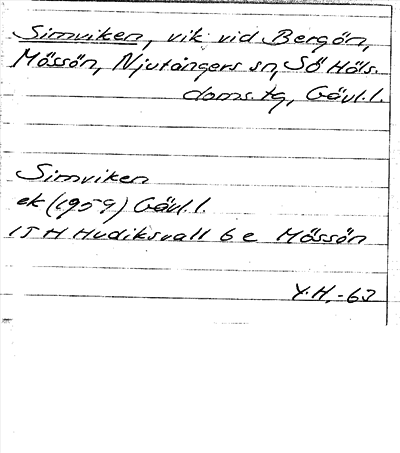 Simviken, vik vid Bergön,
Mössön, Njutångers sn, Sö Häls.
doms. tg, Gävl.l.
Simviken
ek (1959) Gävl.l.
15 H Hudiksvall 6 e Mössön
Y.H. -63